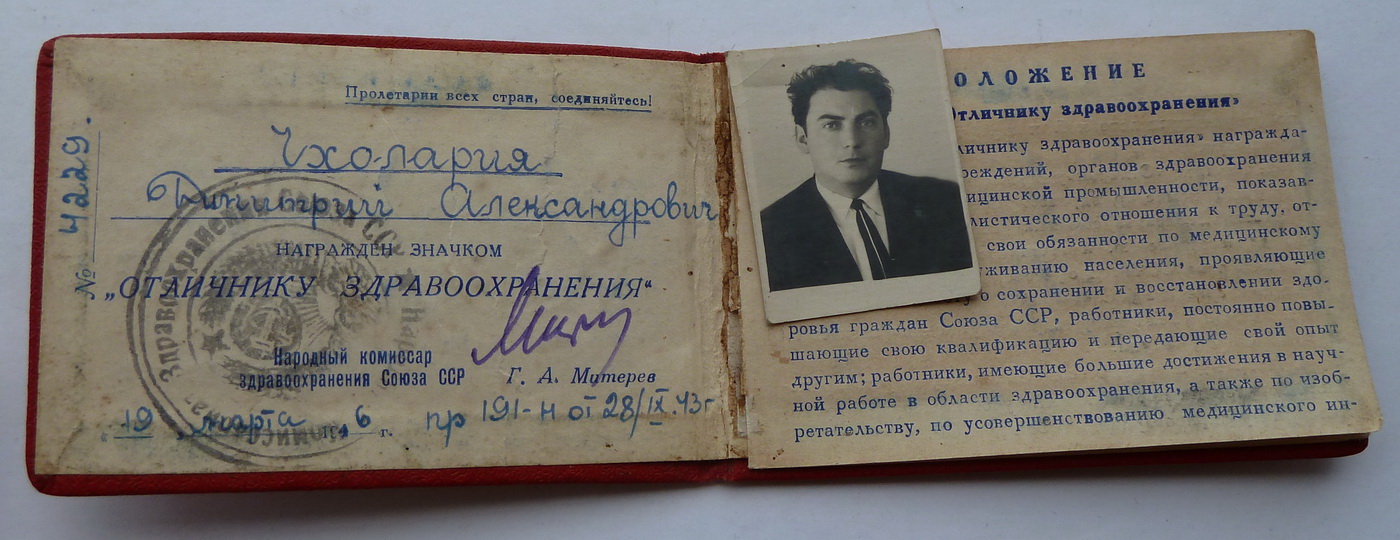 Пролетарии всех стран, соединяйтесь!
№ 4229.
Чхолария
Димитрий Александрович
НАГРАЖДЕН ЗНАЧКОМ
„ОТЛИЧНИКУ ЗДРАВООХРАНЕНИЯ“
Народный комиссар
здравоохранения Союза ССР Г. А. Митерев
„19„ марта 1946 г. пр 191-н от 28/IX.43г
Здравоохранения Союза ССР
ОЛОЖЕНИЕ
Отличнику здравоохранения»
личнику здравоохранения» награжда-
реждений, органов здравоохранения
ицинской промышленности, показав-
листического отношения к труду, от-
свои обязанности по медицинскому
уживанию населения, проявляющие
у о сохранении и восстановлении здо-
ровья граждан Союза ССР, работники, постоянно повы-
шающие свою квалификацию и передающие свой опыт
другим; работники, имеющие большие достижения в науч-
ной работе в области здравоохранения, а также по изоб-
ретательству, по усовершенствованию медицинского ин-